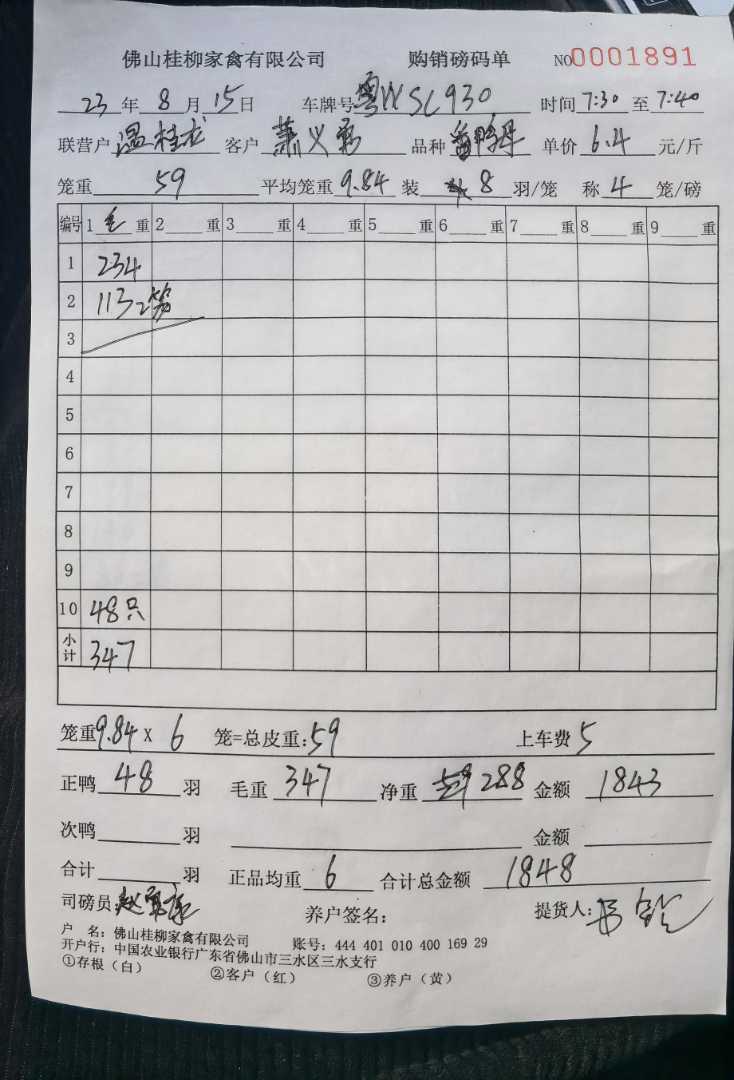 佛山桂柳家禽有限公司 购销磅码单 NO0001891
23年8月15日 车牌号粤WSL930 时间7:30至7:40
联营户温桂龙 客户萧义勇 品种番鸭 单价6.4元/斤
笼重59 平均笼重9.84装8羽/笼 称4笼/磅
编号 1毛重 2重 3重 4重 5重 6重 7重 8重 9重
1 234
2 113 2笼
3
4
5
6
7
8
9
10 48只
小计 347
笼重9.84x6笼=总皮重:59 上车费5
正鸭48羽 毛重347净重288 金额1843
次鸭羽 金额
合计羽 正品均重6 合计总金额1848
司磅员: 养户签名: 提货人:
户 名:佛山桂柳家禽有限公司 账号:444 401 010 400 169 29
开户行:中国农业银行广东省佛山市三水区三水支行
①存根(白) ②客户(红) ③养户(黄)